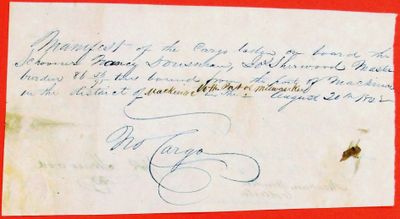 Manifest of the Cargo laden on board the
Schooner Nancy Dousman, Sherwood Master
burden tons bound from the Port of Mackinac
in the district of Mackinac to the Port of Milwaukee
August 20th
No Cargo